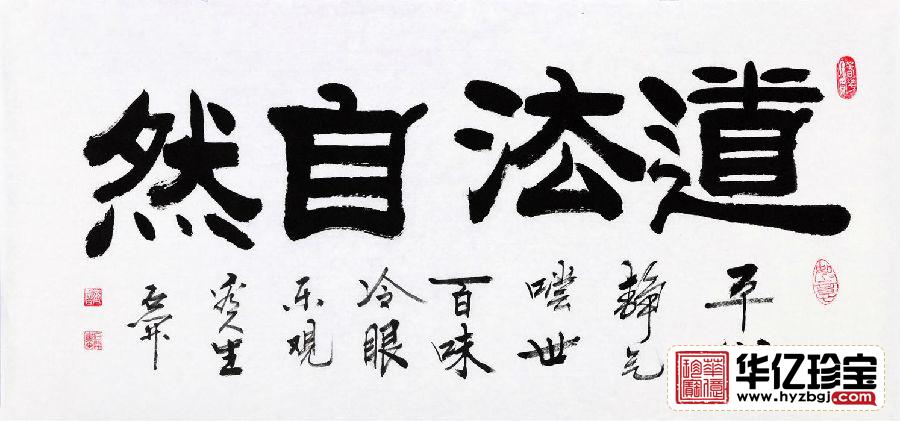 道法自然
平
静气
世
百味
冷眼
乐观
人生
华亿珍宝
www.hyzbgj.com